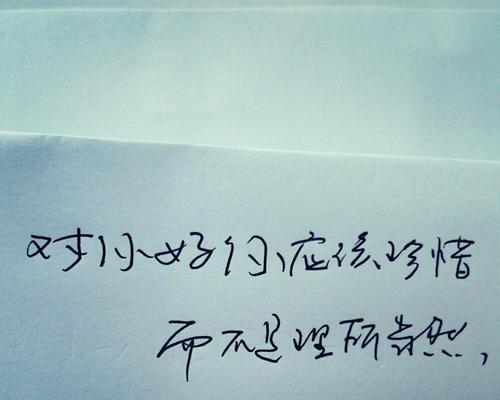 对你好的人应该珍惜
而不是理所当然,